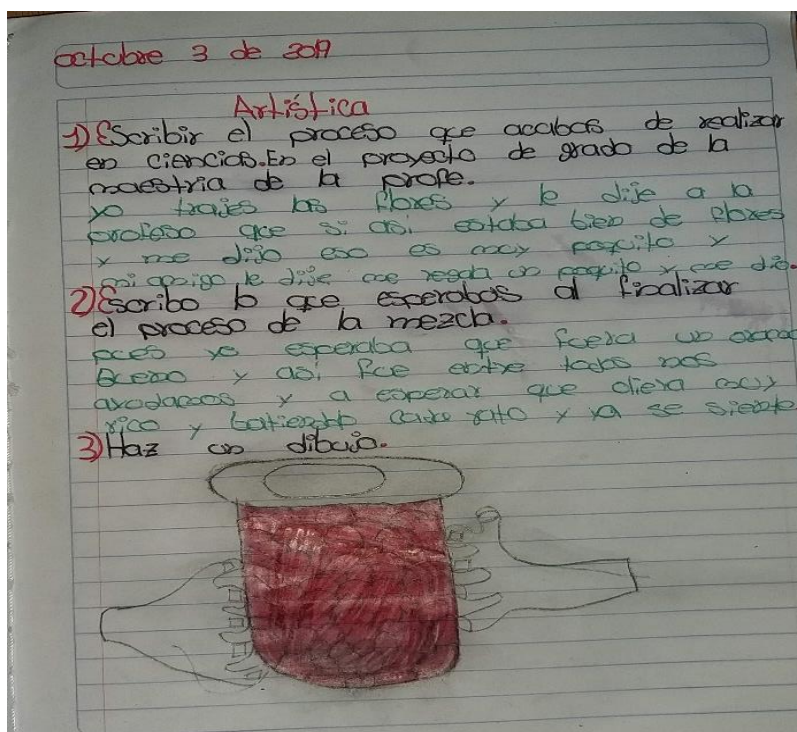 octubre 3 de 2019
Artística
1) Escribir el proceso que acabas de realizar
en ciencias. En el proyecto de grado de la
maestria de la profe.
yo trajes las flores y le dije a la
profeso que si asi estaba bien de flores
y me dijo eso es muy poquito y
mi amigo le dije me regala un poquito y me dio.
2) Escribo lo que esperabas al finalizar
el proceso de la mezcla.
pues yo esperaba que fuera un
Bueno y asi fue entre todos nos
ayudamos y a esperar que oliera muy
rico y batiendo cada rato y ya se siente
3) Haz un dibujo.